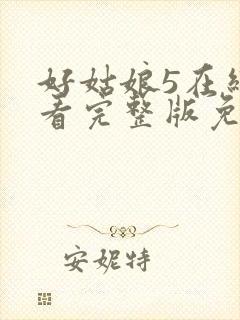 好姑娘5在线
看完整版免
安妮特